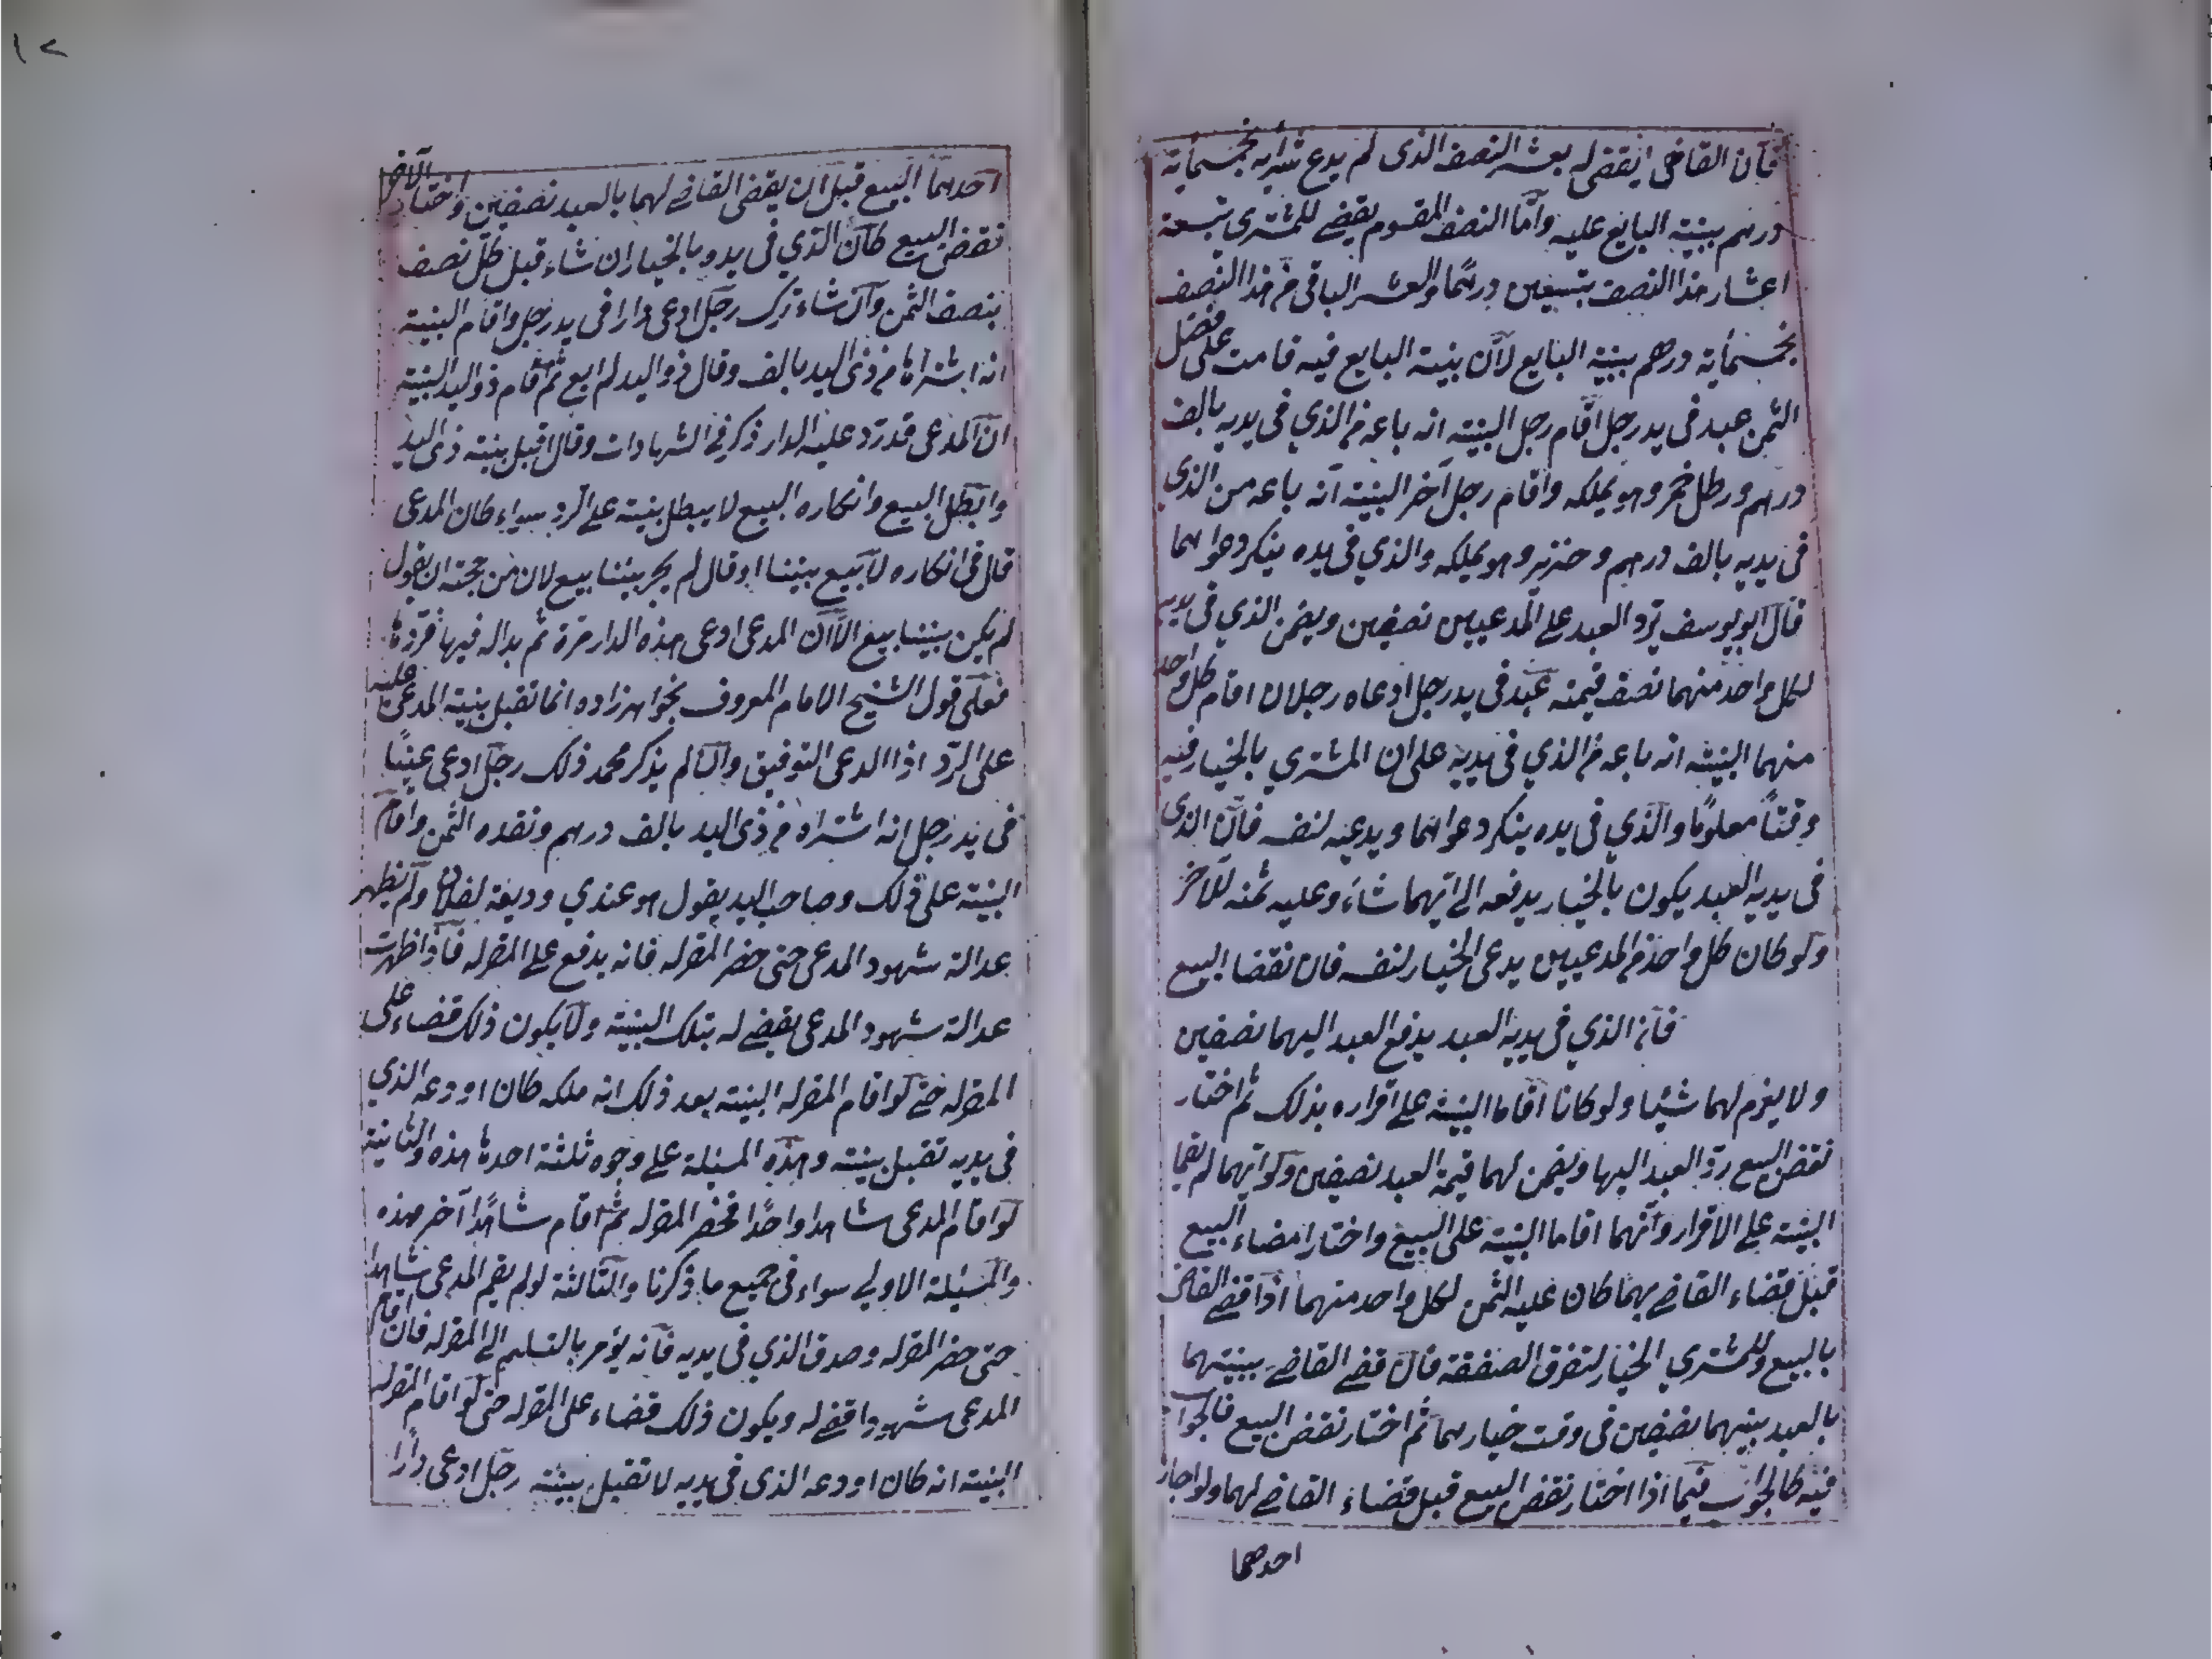 فان القاضي يقضي له بعشر النصف الذي لم يدع شراءه بخمسمأية
درهم ببينة البايع عليه واما النصف المقسوم يقضے للمشتري بتسعة
اعشار هذا النصف بتسعين درهما والعشر الباقي من هذا النصف
بخمسمأية درهم ببينة البايع لان بينة البايع فيه قامت على فضل
الثمن عبد في يد رجل اقام رجل البينة انه باعه من الذي في يديه بالف
درهم ورطل خمر وهو يملكه واقام رجل آخر البينة انه باعه من الذي
في يديه بالف درهم وخنزير وهو يملكه والذي في يده ينكر دعواهما
قال ابو يوسف ترد العبد علے المدعيين نصفين ويضمن الذي في يديه
لكل واحد منهما نصف قيمته عبد في يد رجل ادعاه رجلان اقام كل واحد
منهما البينة انه باعه من الذي في يديه على ان المشتري بالخيار فيه
وقتاً معلومًا والذي في يده ينكر دعواهما ويدعيه لنفسه فان الذي
في يديه العبد يكون بالخيار يدفعه الے ايهما شاء وعليه ثمنه للآخر
ولو كان كل واحد من المدعيين يدعى الخيار لنفسه فان نقضا البيع
فان الذي في يديه العبد يدفع العبد اليهما نصفين
ولا يغرم لهما شيئا ولو كانا اقاما البينة علے اقراره بذلك ثم اختار
نقض البيع ردّ العبد اليهما ويضمن لهما قيمة العبد نصفين ولو انهما لم يقيما
البينة علے الاقرار وانهما اقاما البينة على البيع واختارا مضاء البيع
قبل قضاء القاضے بهما كان عليه الثمن لكل واحد منهما اذا قضے القاضے
بالبيع وللمشتري الخيار لتفرق الصفقة فان قضے القاضے ببينتهما
بالعبد بينهما نصفين في وقت خيارهما ثم اختار نقض البيع فالجواب
فيه كالجواب فيما اذا اختار نقض البيع قبل قضاء القاضے لهما ولو اجاز
احدهما
١٢
احدهما البيع قبل ان يقضى القاضے لهما بالعبد نصفين واختار الآخر
نقض البيع كان الذي في يده بالخيار ان شاء قبل كل نصف
بنصف الثمن وان شاء ترك رجل ادعى دارا في يد رجل واقام البينة
انه اشتراها من ذى اليد بالف وقال ذو اليد لم ابع ثم اقام ذو اليد البينة
ان المدعى قد ردّ عليه الدار ذكر في الشهادات وقال اقبل بينة ذى اليد
وابطل البيع وانكاره البيع لا يبطل بينته علے الرد سواء كان المدعى
قال في انكاره لا بيع بيننا او قال لم يجر بيننا بيع لان من حجته ان يقول
لم يكن بيننا بيع الا ان المدعى ادعى هذه الدار مرة ثم بداله فيها فردها
فعلى قول الشيخ الامام المعروف بخواهرزاده انما تقبل بينة المدعى عليه
على الردّ اذا ادعى التوفيق وان لم يذكر محمد ذلك رجل ادعى عينًا
في يد رجل انه اشتراه من ذى اليد بالف درهم ونقده الثمن واقام
البينة على ذلك وصاحب اليد يقول هو عندي وديعة لفلان ولم يظهر
عدالة شهود المدعى حتى حضر المقرله فانه يدفع علے المقرله فاذا ظهرت
عدالة شهود المدعى يقضے له بتلك البينة ولا يكون ذلك قضاء على
المقرله حتے لو اقام المقرله البينة بعد ذلك انه ملكه كان اودعه الذي
في يديه تقبل بينته وهذه المسئلة علے وجوه ثلثة احدها هذه والثانية
لو اقام المدعى شاهدا واحدًا فحضر المقرله ثم اقام شاهدًا آخر هذه
والمسئلة الاولے سواء في جميع ما ذكرنا والثالثة لو لم يقم المدعى شاهدا
حتى حضر المقرله وصدق الذي في يديه فانه يؤمر بالتسليم الے المقرله فان اقام
المدعى شهودا قضے له ويكون ذلك قضاء على المقرله حتى لو اقام المقرله
البينة انه كان اودعه الذي في يديه لا تقبل بينته رجل ادعى دارًا